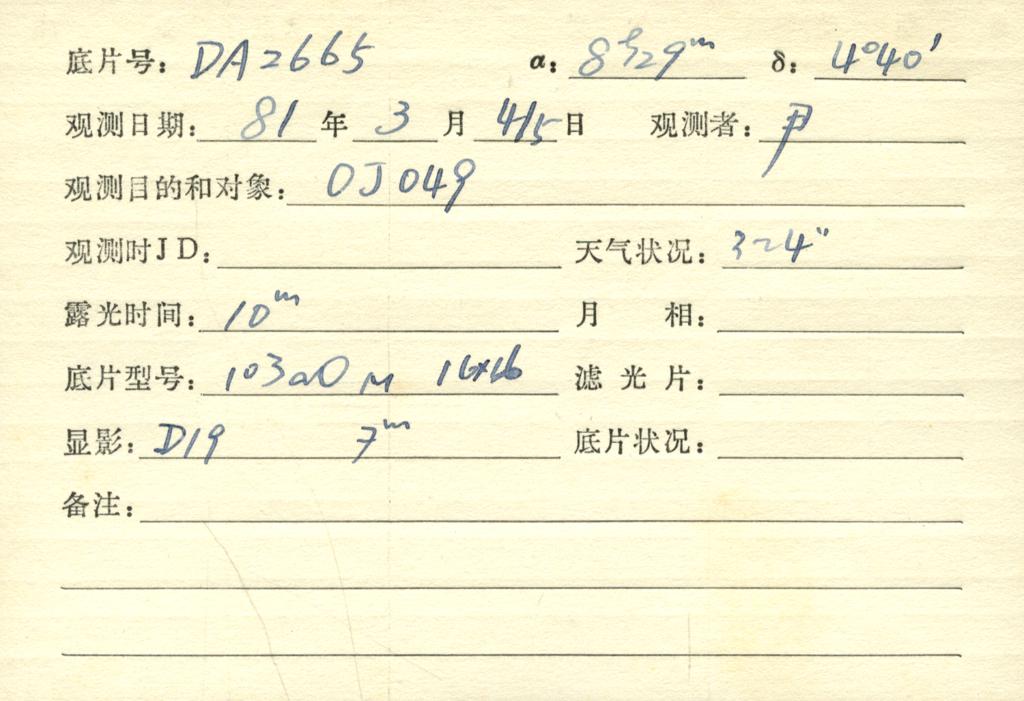 底片号: DA2665 α: 8h29m δ: 4°40′
观测日期: 81 年 3 月 4/5 日 观测者: 尹
观测目的和对象: OJ049
观测时JD: 天气状况: 3~4″
露光时间: 10m 月 相:
底片型号: 103aO M 16×16 滤光片:
显影: D19 7m 底片状况:
备注: